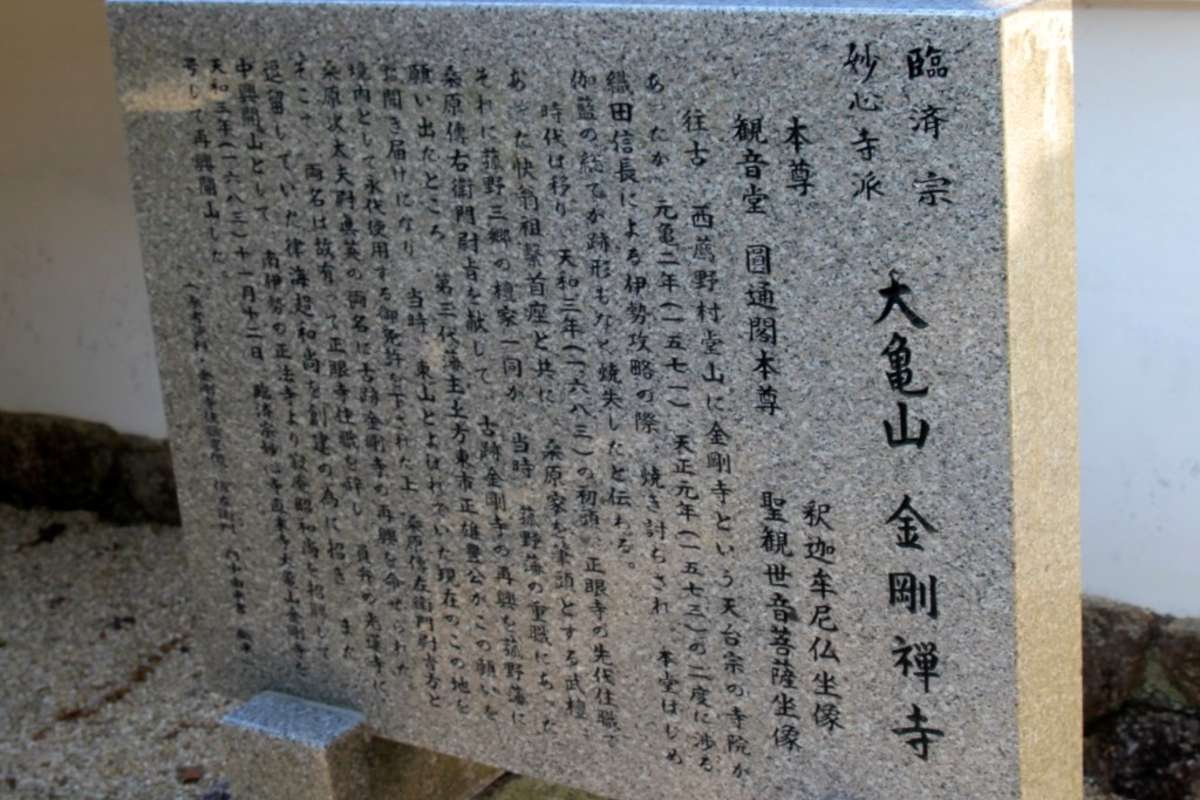 臨済宗
妙心寺派
大亀山 金剛禅寺
本尊 釈迦牟尼仏坐像
観音堂 圓通閣本尊 聖観世音菩薩坐像
往古 西薦野村堂山に金剛寺という天台宗の寺院が
あったが 元亀二年(一五七一) 天正元年(一五七三)の二度に渉る
織田信長による伊勢攻略の際 焼き討ちされ 本堂はじめ
伽藍の総てが跡形もなく焼失したと伝わる。
時代は移り 天和三年(一六八三)の初頭 正眼寺の先代住職で
あった快翁祖繁首座と共に 桑原家を筆頭とする武檀
それに菰野三郷の檀家一同が 当時 菰野藩の重職にあった
桑原傳右衛門尉 を献して 古跡金剛寺の再興を菰野藩に
願い出たところ 第三代藩主土方東市正雄豊公がこの願いを
お聞き届けになり 当時 東山とよばれていた現在のこの地を
境内として永代使用する御免許を下された上 桑原 左衛門尉 と
桑原次太夫尉 英の両名に古跡金剛寺の再興を命ぜられた
そこで 両名は故有って正眼寺住職を辞し 員弁の光蓮寺に
逗留していた律海超和尚を創建の為に招き また
中興開山として 南伊勢の正法寺より 昭和尚を招 して
天和三年(一六八三)十一月十二日 臨済宗妙心寺 大亀山金剛寺と
号して再興開山した。